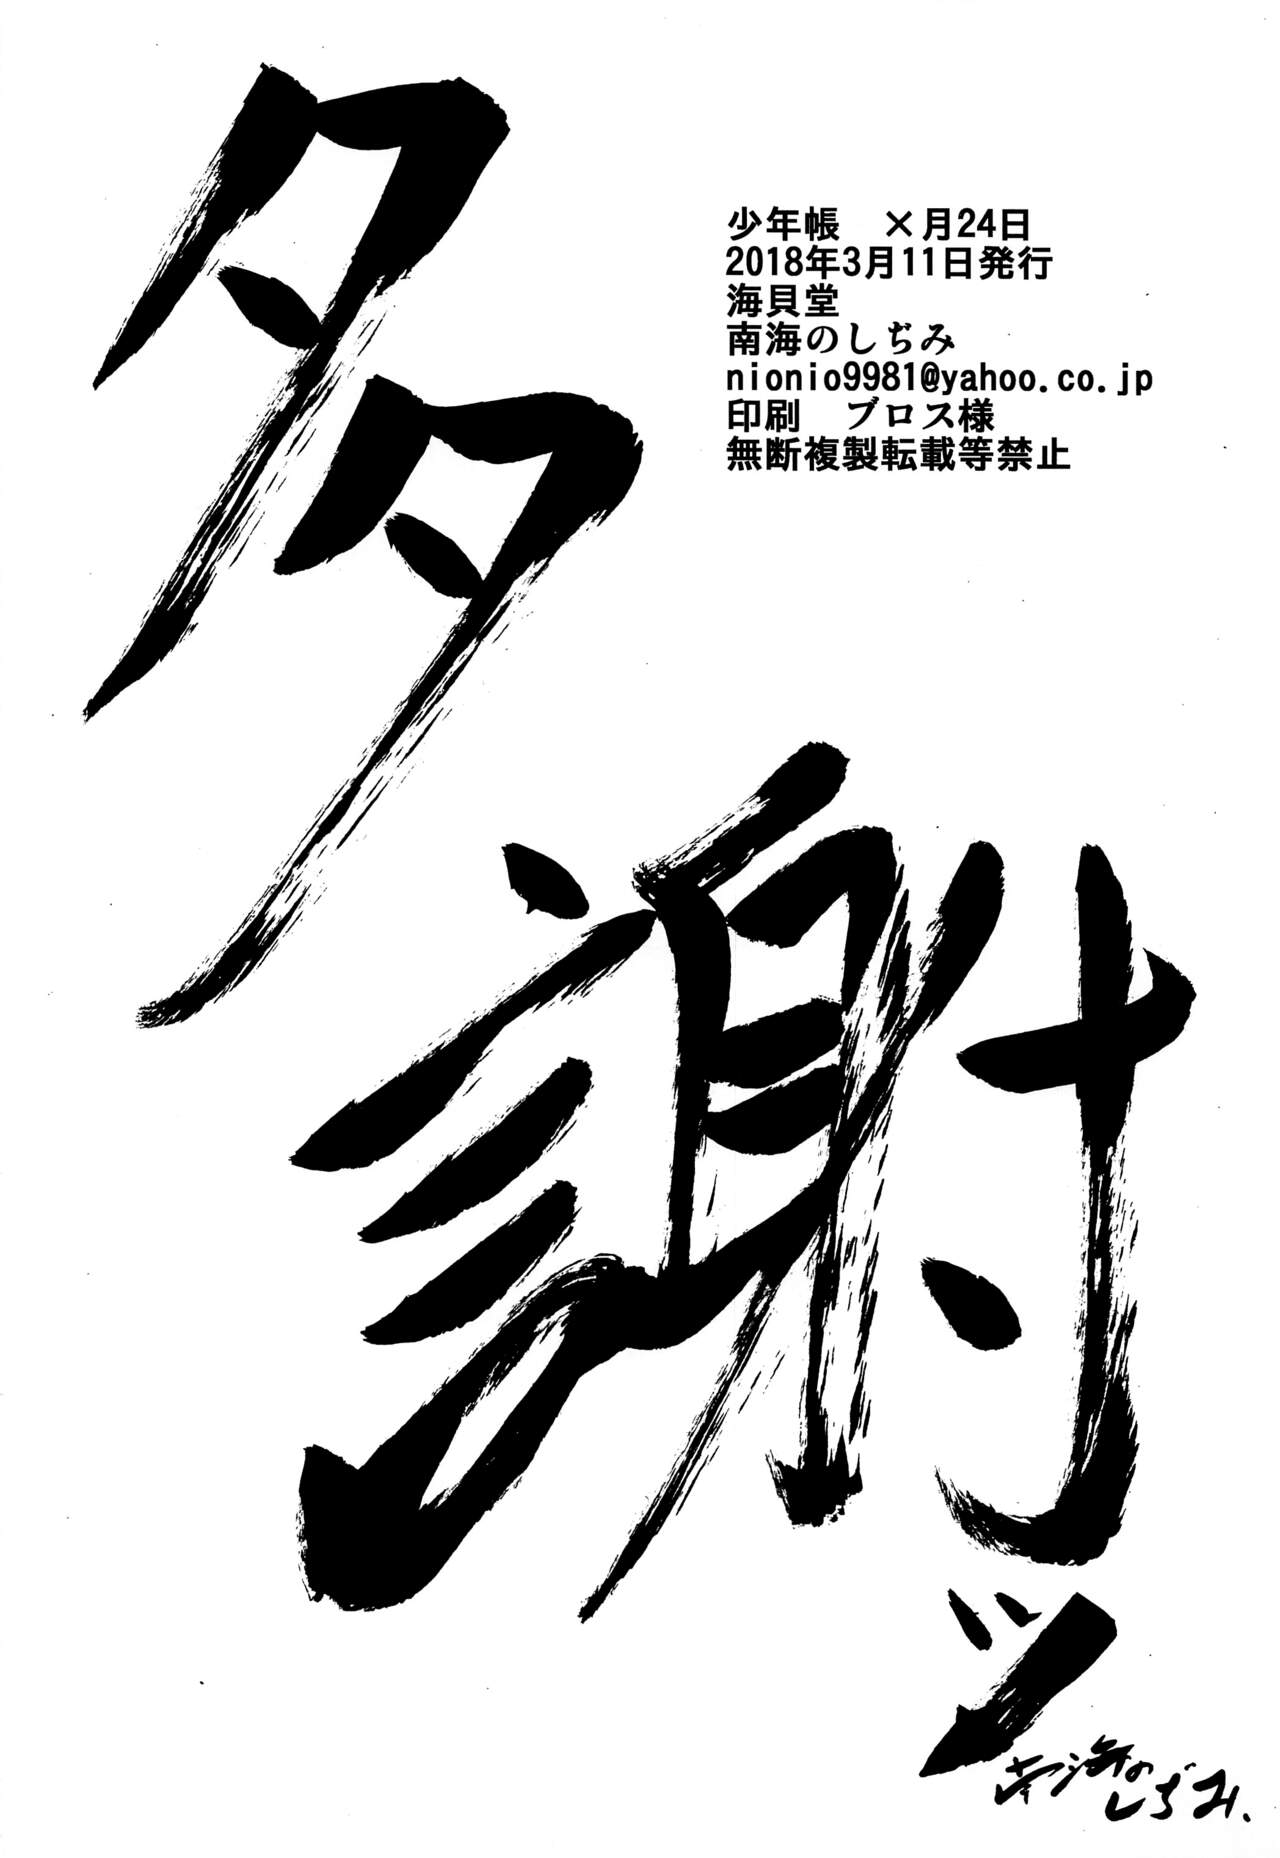 少年帳　×月24日
2018年3月11日発行
海貝堂
南海のしぢみ
nionio9981@yahoo.co.jp
印刷　ブロス様
無断複製転載等禁止
多謝ッ
南海の
しぢみ.